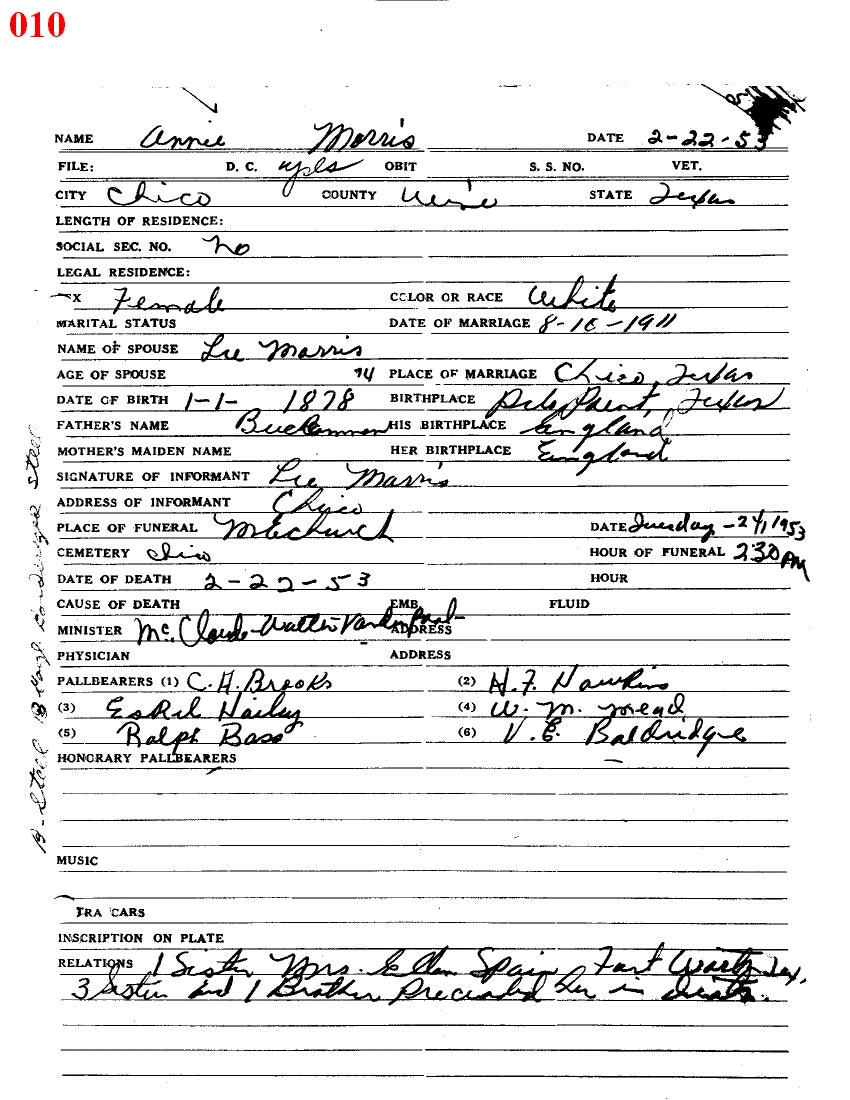 010
NAME Annie Morris DATE 2-22-53
FILE: D. C. OBIT S. S. NO. VET.
CITY Chico COUNTY Wise STATE Texas
LENGTH OF RESIDENCE:
SOCIAL SEC. NO. No
LEGAL RESIDENCE:
X Female COLOR OR RACE White
MARITAL STATUS DATE OF MARRIAGE 8-16-1911
NAME OF SPOUSE Lee Morris
AGE OF SPOUSE 74 PLACE OF MARRIAGE Chico, Texas
DATE OF BIRTH 1-1- 1878 BIRTHPLACE Pilot Point, Texas
FATHER'S NAME HIS BIRTHPLACE England
MOTHER'S MAIDEN NAME HER BIRTHPLACE England
SIGNATURE OF INFORMANT Lee Morris
ADDRESS OF INFORMANT Chico
PLACE OF FUNERAL DATE Tuesday - 24, 1953
CEMETERY Chico HOUR OF FUNERAL 2:30 PM
DATE OF DEATH 2-22-53 HOUR
CAUSE OF DEATH EMB. FLUID
MINISTER ADDRESS
PHYSICIAN ADDRESS
PALLBEARERS (1) C. H. Brooks (2) H. F. Hawkins
(3) Hailey (4) W. M. Mead
(5) Ralph Bass (6) V. E. Baldridge
HONORARY PALLBEARERS
MUSIC
TRA CARS
INSCRIPTION ON PLATE
RELATIONS 1 Sister Mrs. Ellen Spain Fort Worth Tex,
3 Sisters and 1 Brother Preceded her in death.